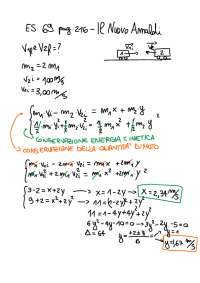 ES 69 pag 216 - Il Nuovo Amaldi
V₁f e V₂f = ?
m₂ = 2 m₁
V₂i = 1,00 m/s
V₁i = 3,00 m/s
m₁ V₁i - m₂ V₂i = m₁ x + m₂ y
½ m₁ V₁i² + ½ m₂ V₂i² = ½ m₁ x² + ½ m₂ y²
CONSERVAZIONE ENERGIA CINETICA
CONSERVAZIONE DELLA QUANTITÀ DI MOTO
m₁ V₁i - 2m₁ V₂i = m₁ x + 2m₁ y
m₁ V₁i² + 2m₁ V₂i² = m₁ x² + 2m₁ y²
3-2 = x+2y → x = 1-2y →
9+2 = x²+2y² 11 = (1-2y)² + 2y²
11 = 1-4y+4y²+2y²
6y²-4y-10=0 → 3y²-2y-5=0